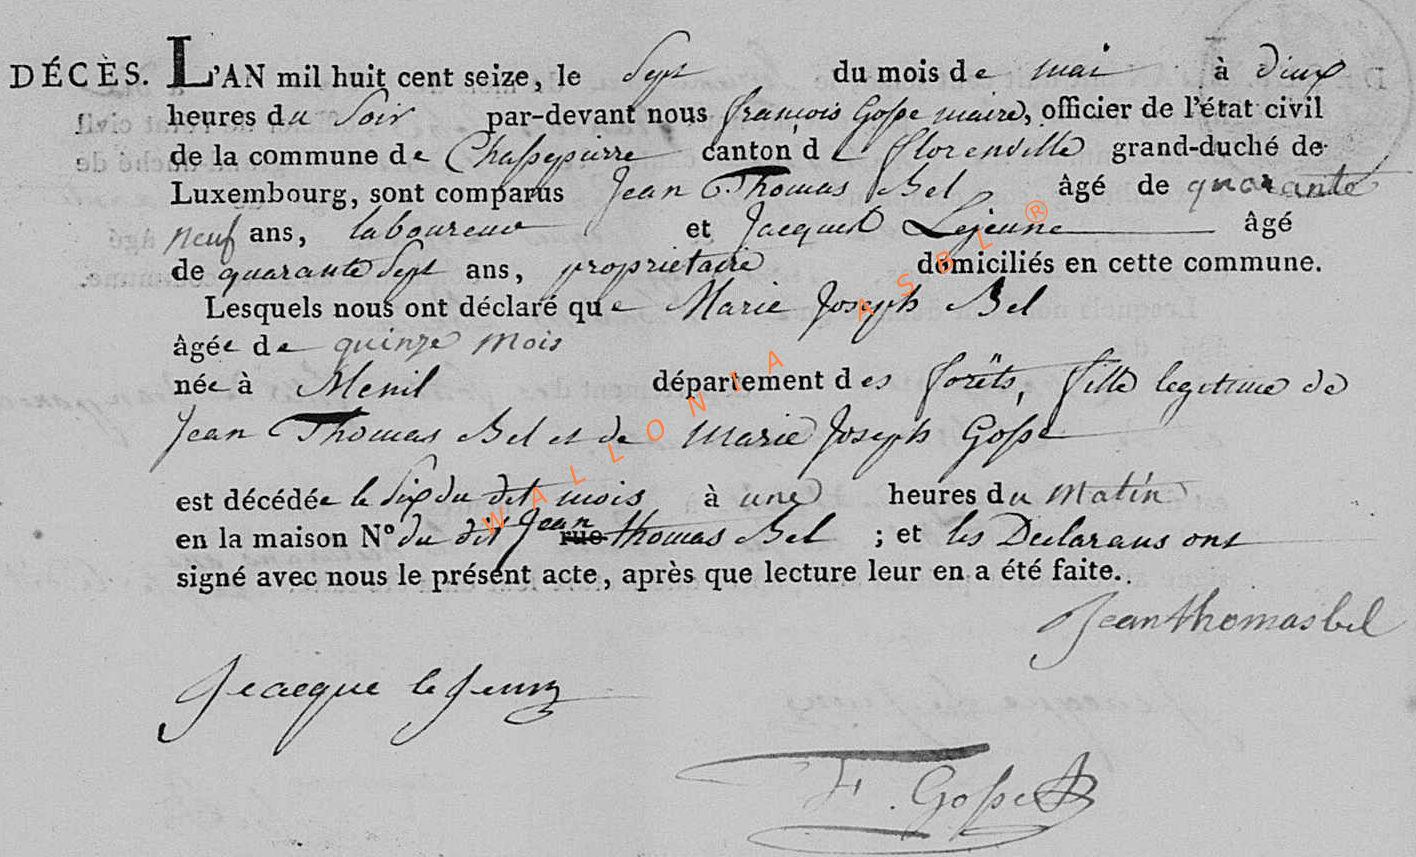 DÉCÈS. L'AN mil huit cent seize, le Sept du mois de mai à deux
heures du Soir par-devant nous françois Gosse maire, officier de l'état civil
de la commune de Chassepierre canton de florenville grand-duché de
Luxembourg, sont comparus Jean Thomas Bel âgé de quarante
neuf ans, laboureur et Jacques Lejeune âgé
de quarante Sept ans, propriétaire domiciliés en cette commune.
Lesquels nous ont déclaré que Marie Joseph Bel
âgée de quinze mois
née à Menil département des forêts, fille legitime de
Jean Thomas Bel et de Marie Joseph Gosse
est décédée le Six du dit mois à une heures du matin
en la maison N° du dit Jean rue thomas Bel ; et les Declarans ont
signé avec nous le présent acte, après que lecture leur en a été faite.
Jean thomas bel
Jeacque le Jeune
F. Gosse
WALLONIA ASBL ®